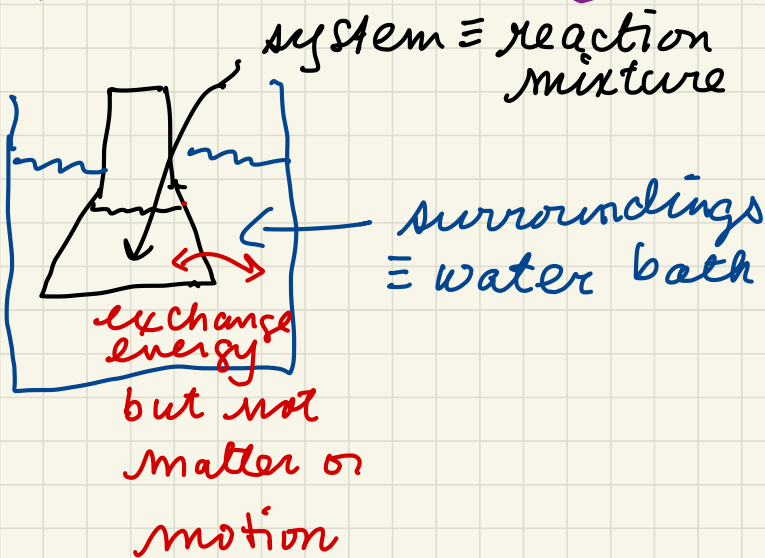 system ≡ reaction
mixture
surroundings
≡ water bath
exchange
energy
but not
matter or
motion